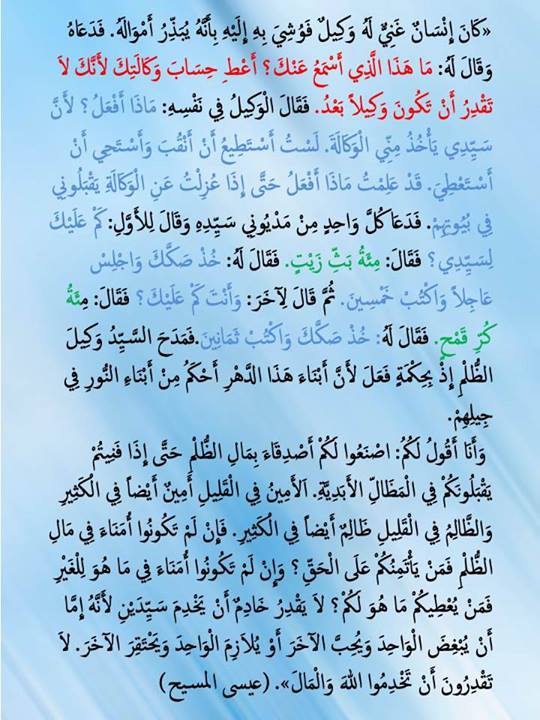 «كَانَ إِنْسَانٌ غَنِيٌّ لَهُ وَكِيلٌ فَوُشِيَ بِهِ إِلَيْهِ بِأَنَّهُ يُبَذِّرُ أَمْوَالَهُ. فَدَعَاهُ
وَقَالَ لَهُ: مَا هَذَا الَّذِي أَسْمَعُ عَنْكَ؟ أَعْطِ حِسَابَ وَكَالَتِكَ لأَنَّكَ لاَ
تَقْدِرُ أَنْ تَكُونَ وَكِيلاً بَعْدُ. فَقَالَ الْوَكِيلُ فِي نَفْسِهِ: مَاذَا أَفْعَلُ؟ لأَنَّ
سَيِّدِي يَأْخُذُ مِنِّي الْوَكَالَةَ. لَسْتُ أَسْتَطِيعُ أَنْ أَنْقُبَ وَأَسْتَحِي أَنْ
أَسْتَعْطِيَ. قَدْ عَلِمْتُ مَاذَا أَفْعَلُ حَتَّى إِذَا عُزِلْتُ عَنِ الْوَكَالَةِ يَقْبَلُونِي
فِي بُيُوتِهِمْ. فَدَعَا كُلَّ وَاحِدٍ مِنْ مَدْيُونِي سَيِّدِهِ وَقَالَ لِلأَوَّلِ: كَمْ عَلَيْكَ
لِسَيِّدِي؟ فَقَالَ: مِئَةُ بَثِّ زَيْتٍ. فَقَالَ لَهُ: خُذْ صَكَّكَ وَاجْلِسْ
عَاجِلاً وَاكْتُبْ خَمْسِينَ. ثُمَّ قَالَ لِآخَرَ: وَأَنْتَ كَمْ عَلَيْكَ؟ فَقَالَ: مِئَةُ
كُرِّ قَمْحٍ. فَقَالَ لَهُ: خُذْ صَكَّكَ وَاكْتُبْ ثَمَانِينَ.فَمَدَحَ السَّيِّدُ وَكِيلَ
الظُّلْمِ إِذْ بِحِكْمَةٍ فَعَلَ لأَنَّ أَبْنَاءَ هَذَا الدَّهْرِ أَحْكَمُ مِنْ أَبْنَاءِ النُّورِ فِي
جِيلِهِمْ.
وَأَنَا أَقُولُ لَكُمُ: اصْنَعُوا لَكُمْ أَصْدِقَاءَ بِمَالِ الظُّلْمِ حَتَّى إِذَا فَنِيتُمْ
يَقْبَلُونَكُمْ فِي الْمَظَالِّ الأَبَدِيَّةِ. اَلأَمِينُ فِي الْقَلِيلِ أَمِينٌ أَيْضاً فِي الْكَثِيرِ
وَالظَّالِمُ فِي الْقَلِيلِ ظَالِمٌ أَيْضاً فِي الْكَثِيرِ. فَإِنْ لَمْ تَكُونُوا أُمَنَاءَ فِي مَالِ
الظُّلْمِ فَمَنْ يَأْتَمِنُكُمْ عَلَى الْحَقِّ؟ وَإِنْ لَمْ تَكُونُوا أُمَنَاءَ فِي مَا هُوَ لِلْغَيْرِ
فَمَنْ يُعْطِيكُمْ مَا هُوَ لَكُمْ؟ لاَ يَقْدِرُ خَادِمٌ أَنْ يَخْدِمَ سَيِّدَيْنِ لأَنَّهُ إِمَّا
أَنْ يُبْغِضَ الْوَاحِدَ وَيُحِبَّ الآخَرَ أَوْ يُلاَزِمَ الْوَاحِدَ وَيَحْتَقِرَ الآخَرَ. لاَ
تَقْدِرُونَ أَنْ تَخْدِمُوا اللهَ وَالْمَالَ». (عيسى المسيح)